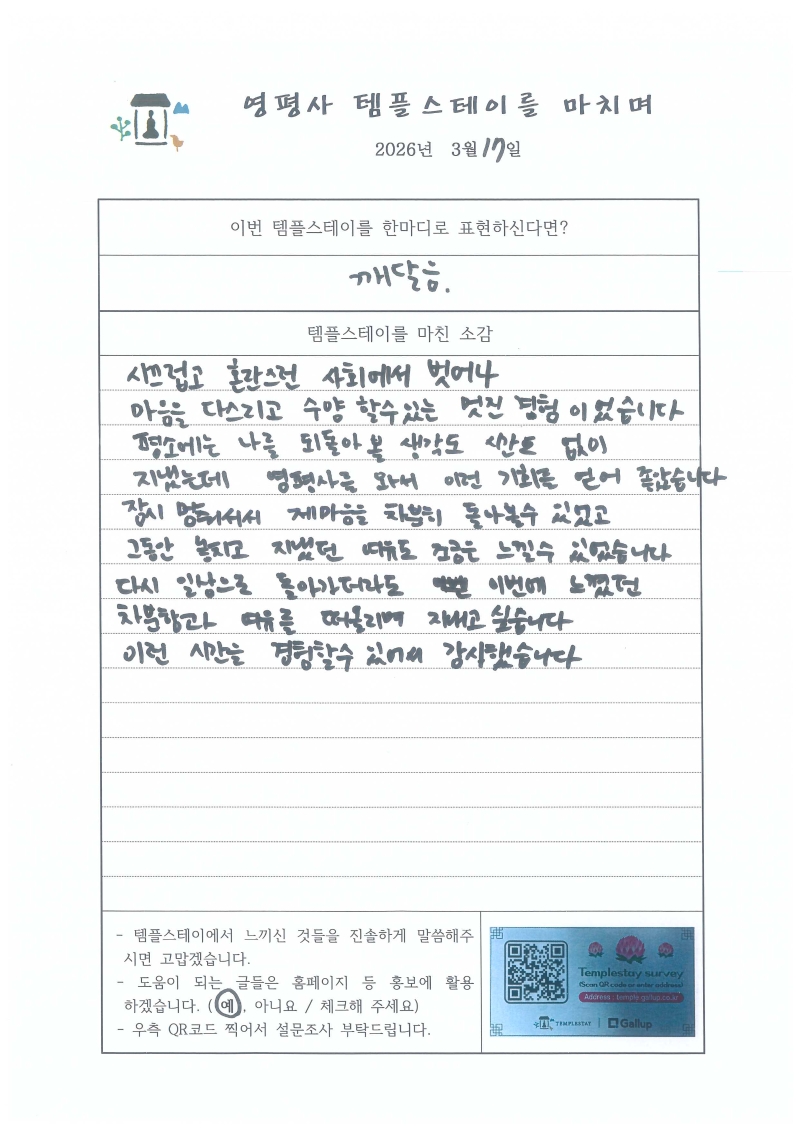 영평사 템플스테이를 마치며
2026년 3월 17일
이번 템플스테이를 한마디로 표현하신다면?
깨달음.
템플스테이를 마친 소감
시끄럽고 혼란스런 사회에서 벗어나
마음을 다스리고 수양 할수있는 멋진 경험 이었습니다
평소에는 나를 되돌아 볼 생각도 시간도 없이
지냈는데 영평사를 와서 이런 기회를 얻어 좋았습니다
잠시 멈춰서서 제마음을 차분히 돌아볼수 있었고
그동안 놓치고 지냈던 여유도 조금은 느낄수 있었습니다
다시 일상으로 돌아가더라도 이번에 느꼈던
차분함과 여유를 떠올리며 지내고 싶습니다
이런 시간을 경험할수 있어서 감사했습니다
- 템플스테이에서 느끼신 것들을 진솔하게 말씀해주
시면 고맙겠습니다.
- 도움이 되는 글들은 홈페이지 등 홍보에 활용
하겠습니다. (예, 아니요 / 체크해 주세요)
- 우측 QR코드 찍어서 설문조사 부탁드립니다.
Templestay survey
(Scan QR code or enter address)
Address : temple.gallup.co.kr
TEMPLESTAY | Gallup